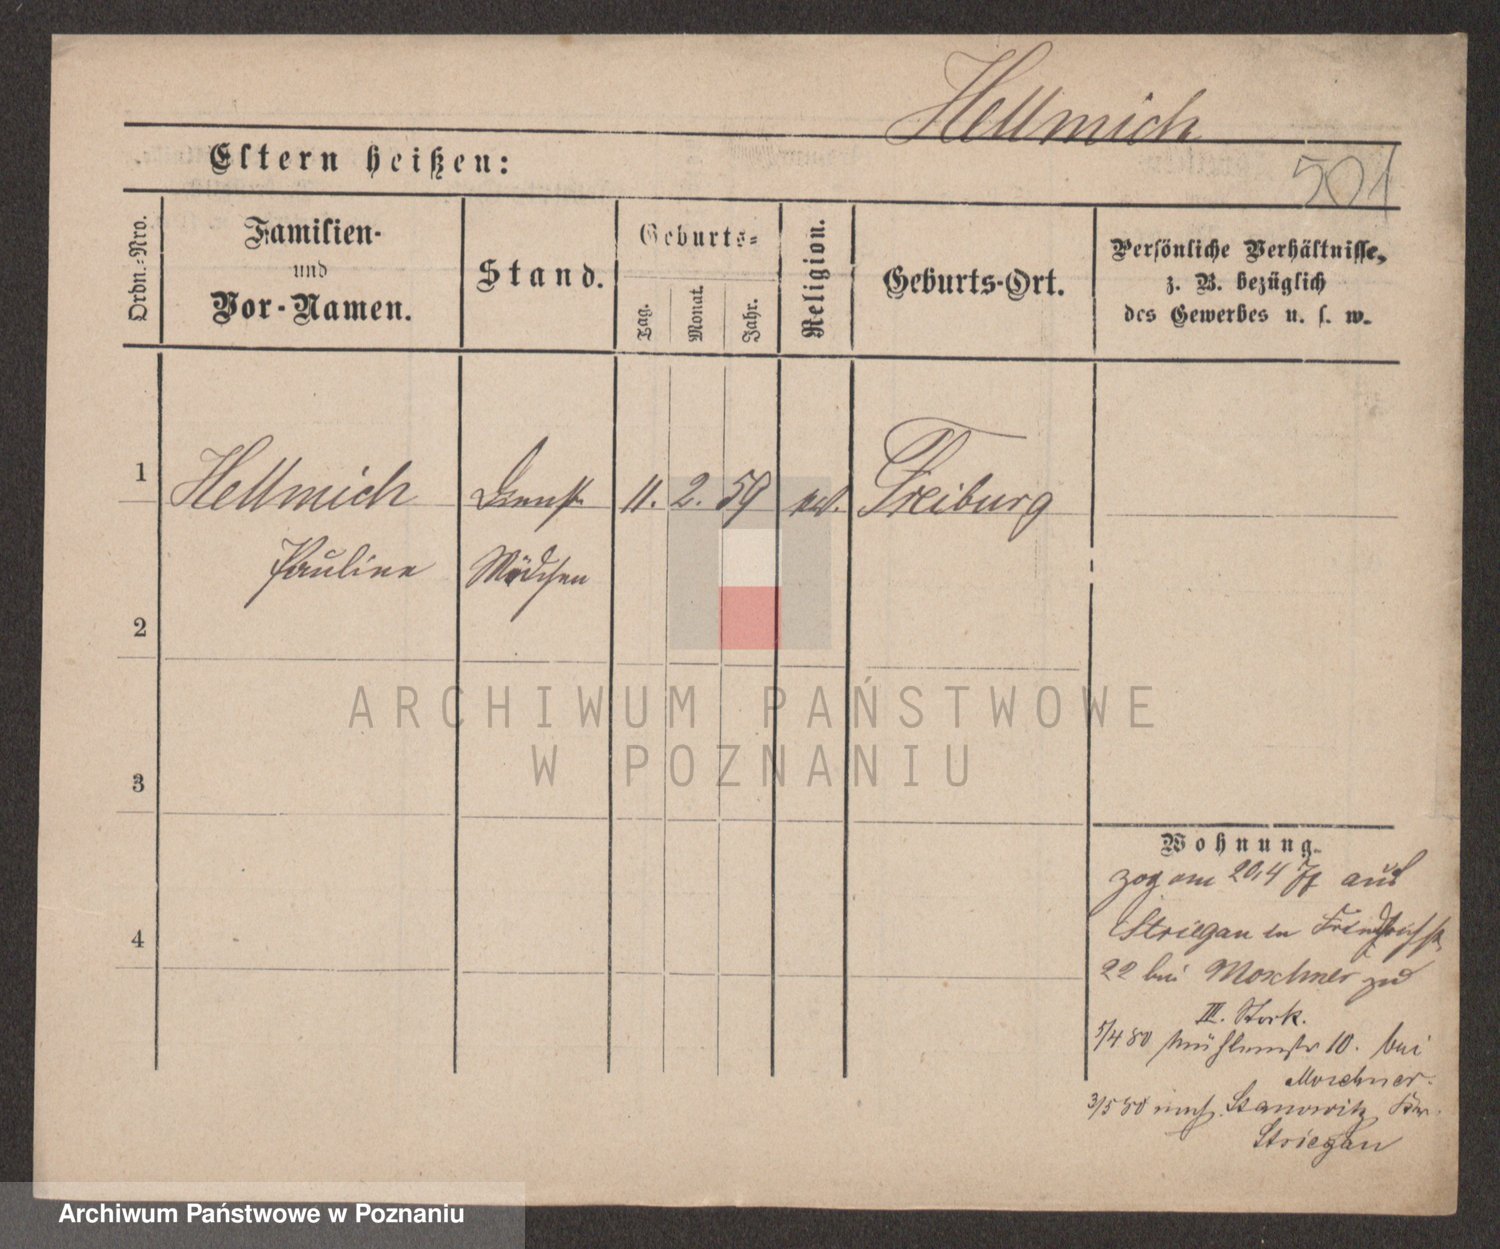 Hellmich
Eltern heißen:
501
Ordn.-Nro.
Familien-
und
Vor-Namen.
Stand.
Geburts-
Tag.
Monat.
Jahr.
Religion.
Geburts-Ort.
Persönliche Verhältnisse,
z. B. bezüglich
des Gewerbes u. s. w.
1
Hellmich
Dienst
11. 2. 59
Freiburg
Pauline
Mädchen
2
ARCHIWUM PAŃSTWOWE
W POZNANIU
3
Wohnung.
zog am 20.4 aus
Striegau in
22 bei Moschner zu
4
III. Stock.
5/4 80 Mühlenstr 10. bei
Moschner.
3/5 80 nach Stanowitz Kr.
Striegau
Archiwum Państwowe w Poznaniu